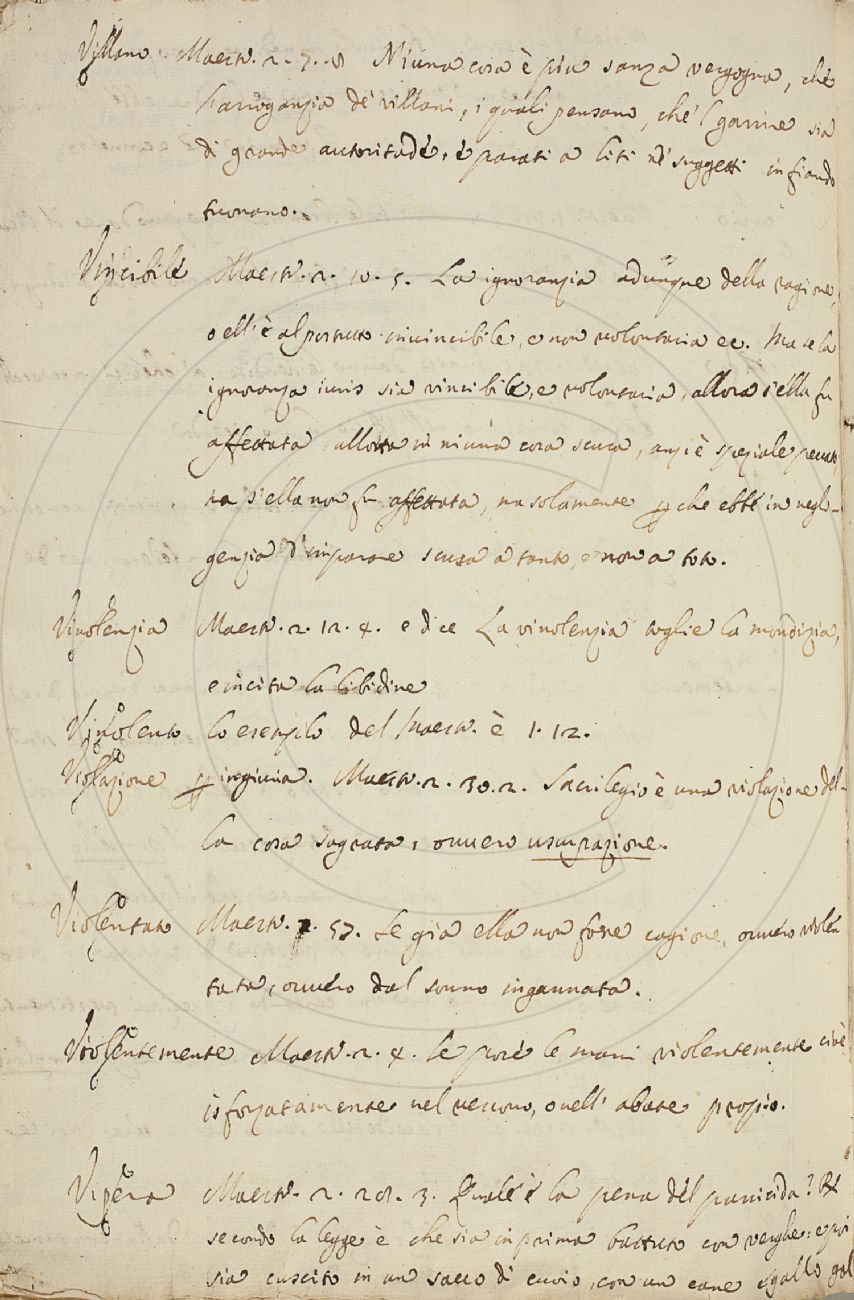 Villano Maestr. 2. 7. 8 Niuna cosa è piu sanza vergogna, che
l'arroganzia de' villani, i quali pensano, che 'l garrire sia
di grande autoritade, e parati a liti ne' suggetti infiando
tuonano.
Vincibile Maestr. 2. 10. 5. La ignoranzia adunque della ragione,
o ell'è al postutto invincibile, e non volontaria ec. Ma se la
ignoranza iuris sia vincibile, e volontaria, allora s'ella fu
affettata, allotta in niuna cosa scusa, anzi è speziale peccato
ma s'ella non fu affettata, ma solamente p che ebbe in negli-
genzia d'imparare scusa a tanto, e non a toto.
Vinolenzia Maestr. 2. 12. 4. e dice La vinolenzia toglie la mondizia,
e incita la libidine
Vinolento lo esempio del Maestr. è 1. 12.
Violazione p ingiuria. Maestr. 2. 30. 2. Sacrilegio è una violazione del-
la cosa sagrata, ovvero usurpazione.
Violentato Maestr. 57. Se già ella non fosse cagione, ovvero violen
tata, ovvero dal sonno ingannata.
Violentemente Maestr. 2. 4. Se pose le mani violentemente cioè
isforzatamente nel vescovo, o nell' abate propio.
Vipera Maestr. 2. 28. 3. Quale è la pena del parricida? R
secondo la legge è che sia in prima battuto con verghe: e poi
sia cuscito in un sacco di cuoio, con un cane gallo